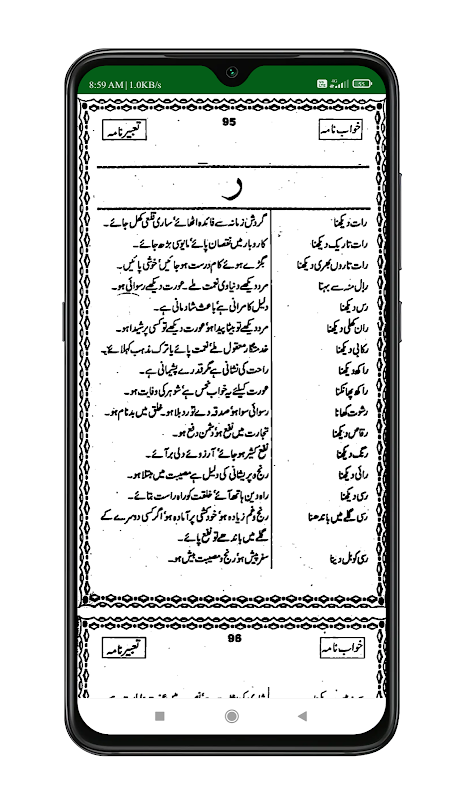 8:59 AM | 1.0KB/s
خواب نامہ 95 تعبیر نامہ
ر
رات دیکھنا گردش زمانہ سے فائدہ اٹھائے' ساری قلعی کھل جائے۔
رات تاریک دیکھنا کاروبار میں نقصان پائے' مایوسی بڑھ جائے۔
رات تاروں بھری دیکھنا بگڑے ہوئے کام درست ہو جائیں' خوشی پائیں۔
رال منہ سے بہنا مرد دیکھے دنیاوی نعمت ملے۔ عورت دیکھے رسوائی ہو۔
رس دیکھنا دلیل کامرانی ہے' باعث شادمانی ہے۔
ران کھلی دیکھنا مرد دیکھے تو بیٹا پیدا ہو' عورت دیکھے تو کسی پر شیدا ہو۔
رکابی دیکھنا خدمتگار معقول ملے' نعمت پائے یا ترک مذہب کہلائے۔
راکھ دیکھنا راحت کی نشانی ہے مگر قدرے پشیمانی ہے۔
راکھ پھانکنا عورت کیلئے یہ خواب نحس ہے' شوہر کی وفات ہو۔
رشوت کھانا رسوائی سوا ہو' صدقہ دے تو رد بلا ہو۔ خلق میں بدنام ہو۔
رقاص دیکھنا تجارت میں نفع ہو' دشمن دفع ہو۔
رنگ دیکھنا نفع کثیر ہو جائے' آرزوئے دلی بر آئے۔
رائی دیکھنا رنج و پریشانی کی دلیل ہے مصیبت میں مبتلا ہو۔
رسی دیکھنا راہ دین ہاتھ آئے' خلقت کو راہ راست بتائے۔
رسی گلے میں باندھنا رنج و غم زیادہ ہو' خودکشی پر آمادہ ہو' اگر کسی دوسرے کے
گلے میں باندھے تو نفع پائے۔
رسی کو بل دینا سفر پیش ہو' رنج و مصیبت بیش ہو۔
خواب نامہ 96 تعبیر نامہ